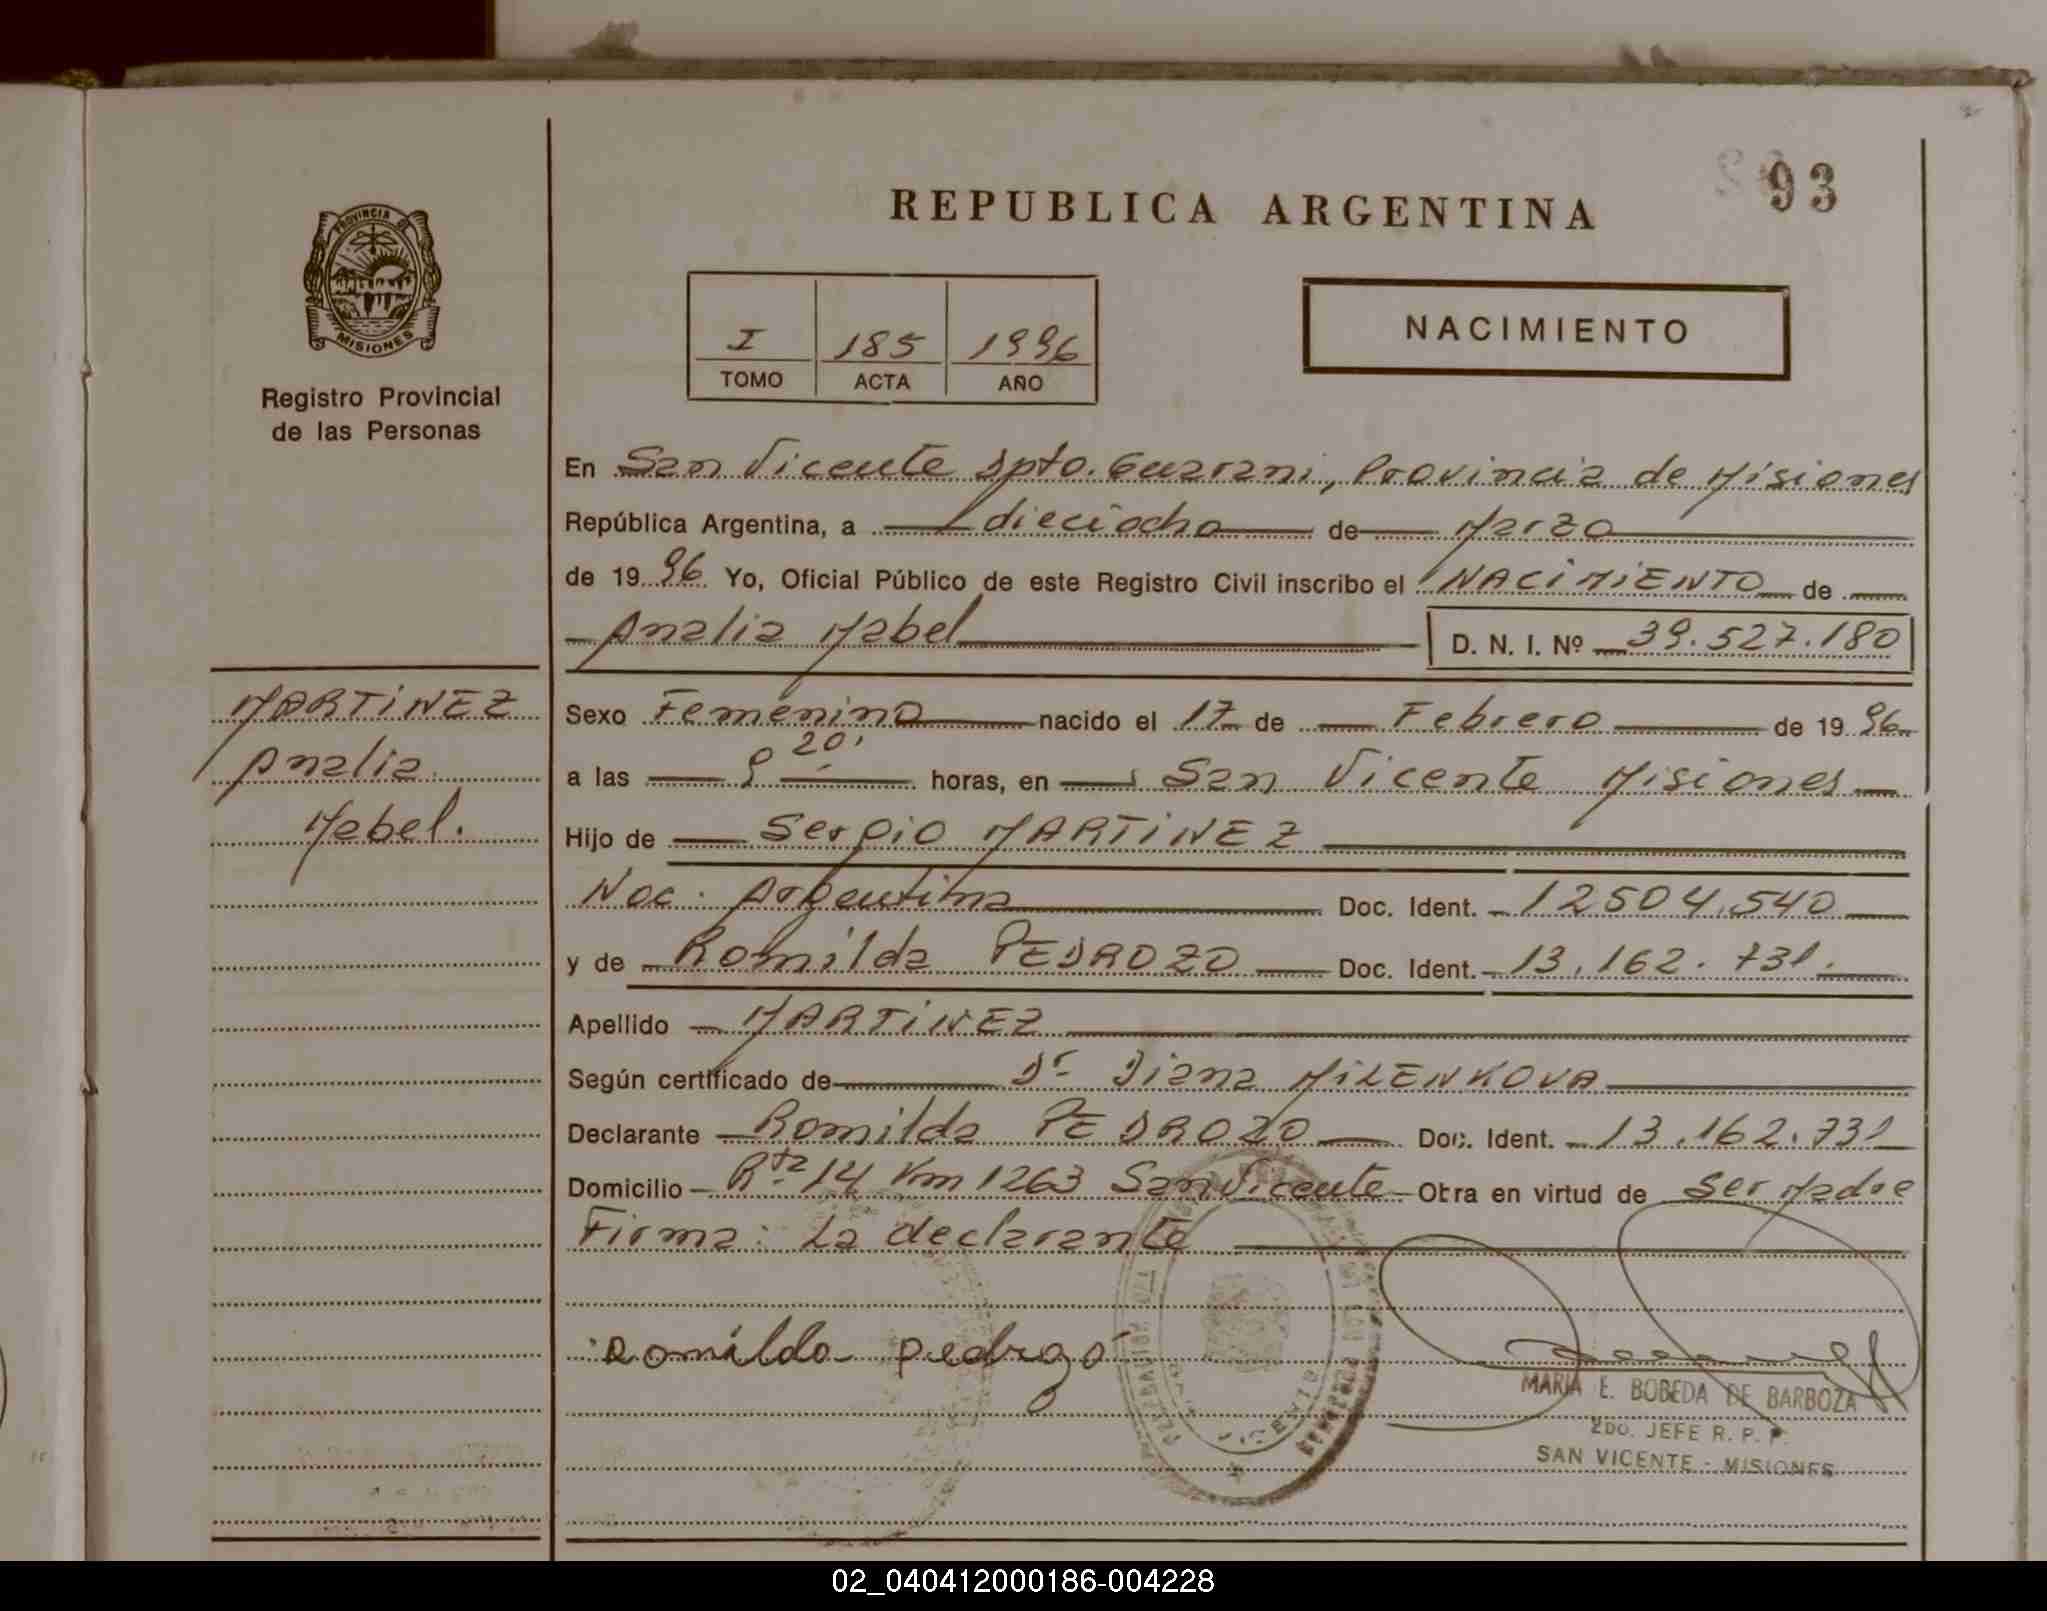 93
REPUBLICA ARGENTINA
PROVINCIA DE
MISIONES
Registro Provincial
de las Personas
I 185 1996
TOMO ACTA AÑO
NACIMIENTO
En San Vicente Dpto. Guarani, Provincia de Misiones
República Argentina, a dieciocho de Marzo
de 1996 Yo, Oficial Público de este Registro Civil inscribo el NACIMIENTO de
Analia Mabel D. N. I. Nº 39.527.180
MARTINEZ
Analia
Mabel.
Sexo Femenino nacido el 17 de Febrero de 1996
a las 9 20' horas, en San Vicente Misiones
Hijo de Sergio MARTINEZ
Nac. Argentina Doc. Ident. 12504.540
y de Romilda PEDROZO Doc. Ident. 13.162.731.
Apellido MARTINEZ
Según certificado de Dr Diana MILENKOVA
Declarante Romilda PEDROZO Doc. Ident. 13.162.731
Domicilio Rta 14 Km 1263 San Vicente Obra en virtud de ser Madre
Firma: La declarante
Romilda pedrozo
MARIA E. BOBEDA DE BARBOZA
2DO. JEFE R. P. P.
SAN VICENTE - MISIONES
02_040412000186-004228